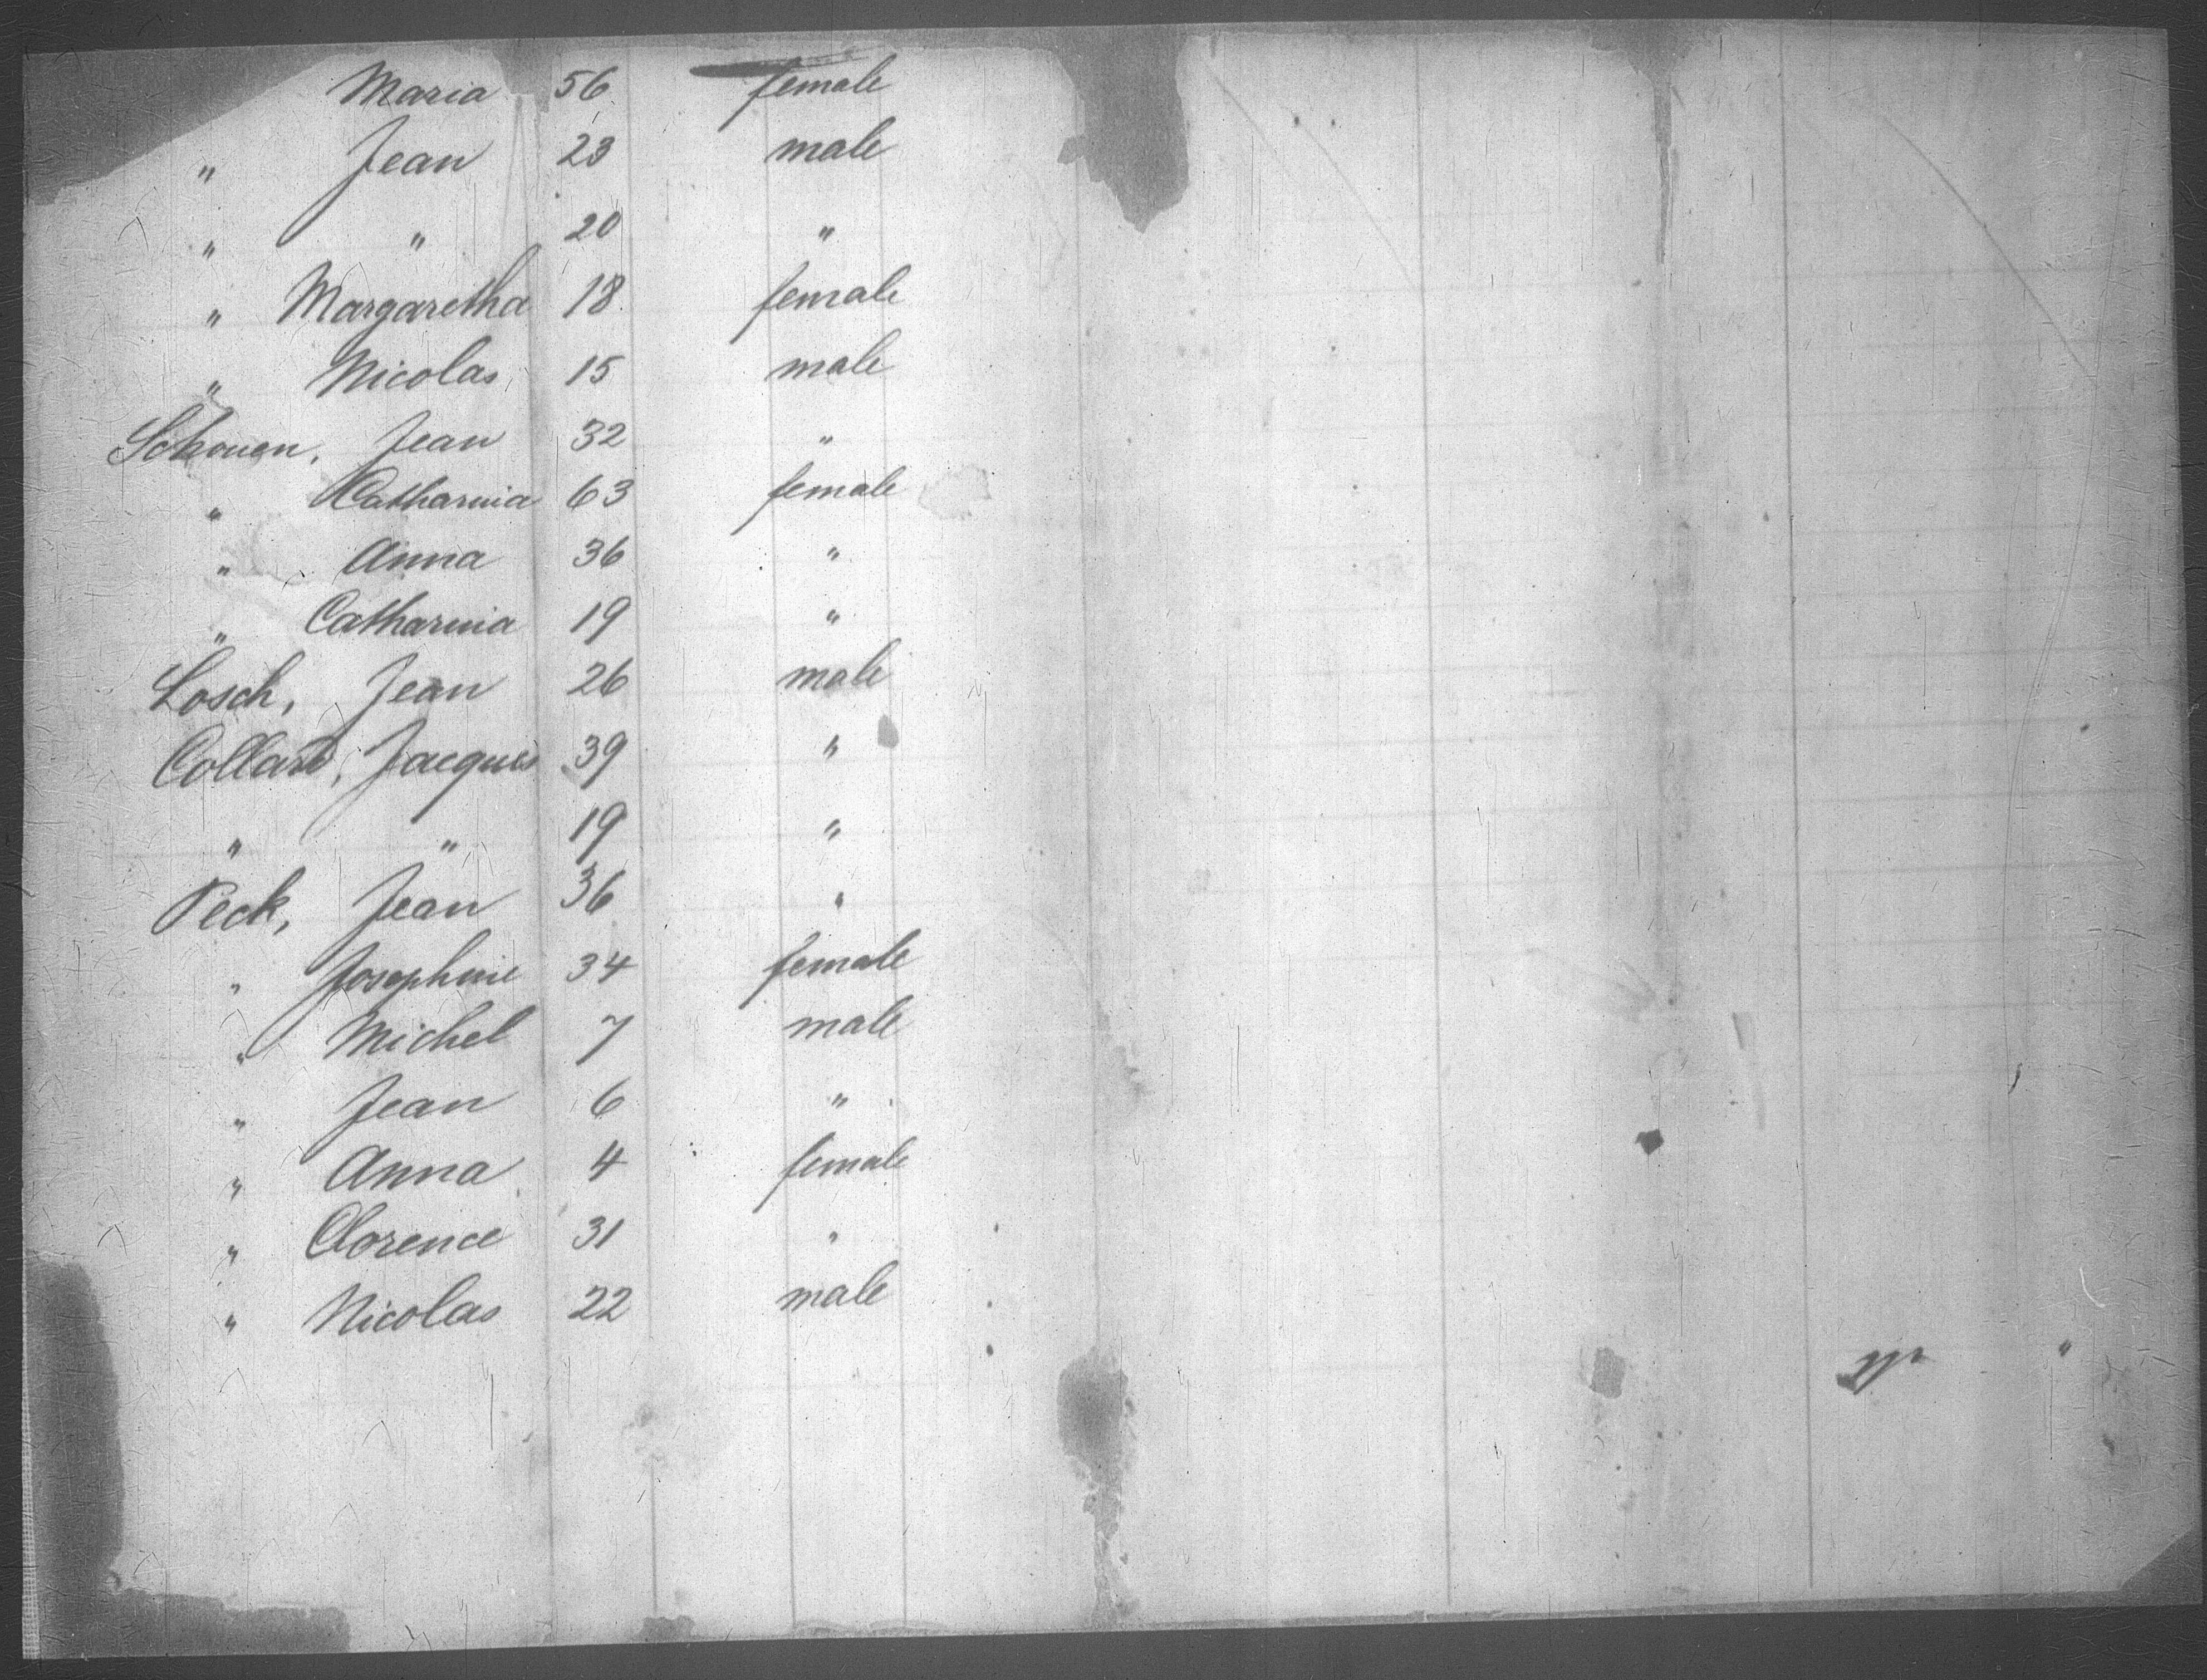 Maria 56 female
" Jean 23 male
" " 20 "
" Margaretha 18 female
" Nicolas 15 male
Schouen, Jean 32 "
" Catharina 63 female
" Anna 36 "
" Catharina 19 "
Losch, Jean 26 male
Collard, Jacques 39 "
" " 19 "
Peck, Jean 36 "
" Josephine 34 female
" Michel 7 male
" Jean 6 "
" Anna 4 female
" Clorence 31 "
" Nicolas 22 male